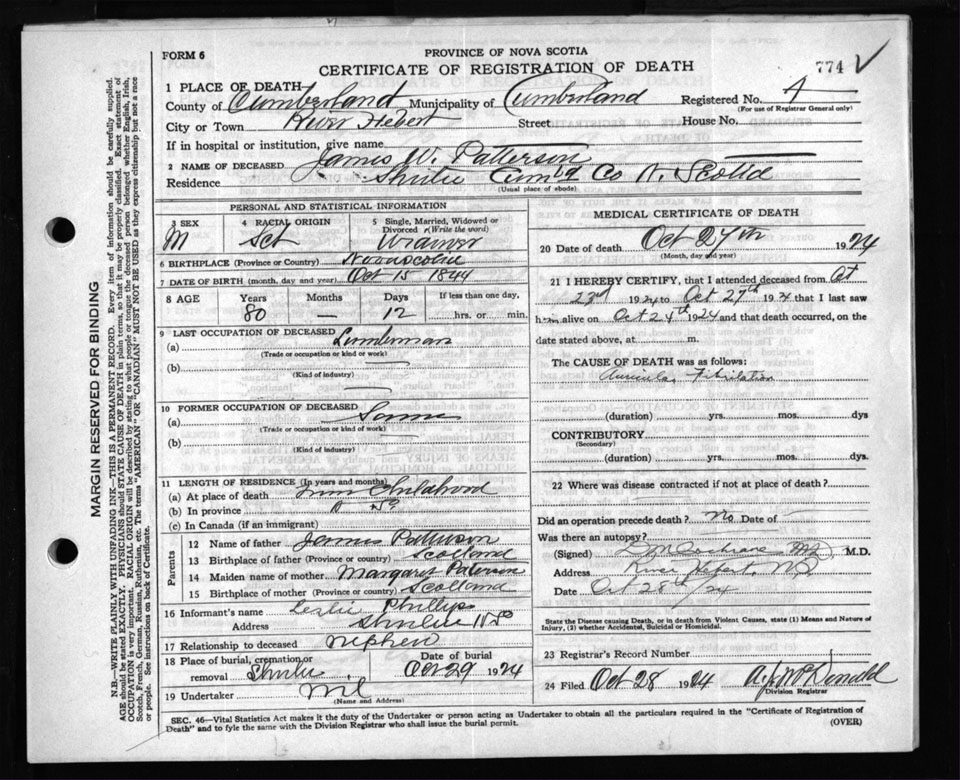 FORM 6
PROVINCE OF NOVA SCOTIA
CERTIFICATE OF REGISTRATION OF DEATH
774 ✓
1 PLACE OF DEATH
County of Cumberland Municipality of Cumberland Registered No. 4
(For use of Registrar General only)
City or Town River Hebert Street House No.
If in hospital or institution, give name
2 NAME OF DECEASED James W. Patterson
Residence Shulie Cumbld Co N. Scotia
(Usual place of abode)
PERSONAL AND STATISTICAL INFORMATION
3 SEX M
4 RACIAL ORIGIN Sct
5 Single, Married, Widowed or Divorced (Write the word)
6 BIRTHPLACE (Province or Country) Nova Scotia
7 DATE OF BIRTH (month, day and year) Oct 15 1844
8 AGE Years 80 Months — Days 12 If less than one day, hrs. or min.
9 LAST OCCUPATION OF DECEASED
(a) Lumberman
(Trade or occupation or kind or work)
(b)
(Kind of industry)
10 FORMER OCCUPATION OF DECEASED
(a) Same
(Trade or occupation or kind of work)
(b)
(Kind of industry)
11 LENGTH OF RESIDENCE (In years and months)
(a) At place of death from Childhood
(b) In province
(c) In Canada (if an immigrant)
Parents
12 Name of father James Patterson
13 Birthplace of father (Province or country) Scotland
14 Maiden name of mother Margaret Paterson
15 Birthplace of mother (Province or country) Scotland
16 Informant's name Leslie Phillips
Address Shulie NS
17 Relationship to deceased nephew
18 Place of burial, cremation or removal Shulie Date of burial Oct 29 1924
19 Undertaker Nil
(Name and Address)
MEDICAL CERTIFICATE OF DEATH
20 Date of death Oct 27th 1924
(Month, day and year)
21 I HEREBY CERTIFY, that I attended deceased from Oct
23rd 1924 to Oct 27th 1924 that I last saw
him alive on Oct 24th 1924 and that death occurred, on the
date stated above, at m.
The CAUSE OF DEATH was as follows:
Auricular Fibrilation
(duration) yrs. mos. dys
CONTRIBUTORY
(Secondary)
(duration) yrs. mos. dys.
22 Where was disease contracted if not at place of death?
Did an operation precede death? No Date of —
Was there an autopsy?
(Signed) Cochrane MD M.D.
Address River Hebert, NS
Date Oct 28/24
State the Disease causing Death, or in death from Violent Causes, state (1) Means and Nature of Injury, (2) whether Accidental, Suicidal or Homicidal.
23 Registrar's Record Number
24 Filed Oct 28 1924
Division Registrar
SEC. 46—Vital Statistics Act makes it the duty of the Undertaker or person acting as Undertaker to obtain all the particulars required in the "Certificate of Registration of
Death" and to fyle the same with the Division Registrar who shall issue the burial permit. (OVER)
MARGIN RESERVED FOR BINDING
N.B.—WRITE PLAINLY WITH UNFADING INK—THIS IS A PERMANENT RECORD. Every item of information should be carefully supplied.
AGE should be stated EXACTLY. PHYSICIANS should STATE CAUSE OF DEATH in plain terms, so that it may be properly classified. Exact statement of
OCCUPATION is very important. RACIAL ORIGIN will be described by stating to what people or tongue the deceased person belonged whether English, Irish,
Scotch, French, German, Russian, Ruthenian, etc. The terms "AMERICAN" OR "CANADIAN" MUST NOT BE USED as they express citizenship but not a race
or people. See instructions on back of Certificate.